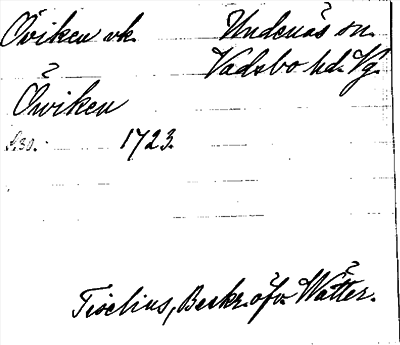 Öviken vk. Undenäs sn.
Vadsbo hd. Vg.
Öhviken
s.30. 1723.
Tiselius, Beskr. öfv. Wätter.